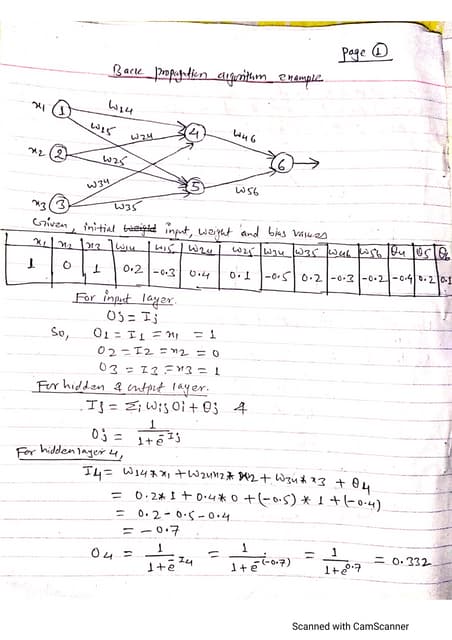 Page ①
Back propagation algorithm example
x1 1 W14
W15
W24 4 W46
x2 2 W25 6
W34 5 W56
x3 3 W35
Given, initial weight input, weight and bias values
x1 x2 x3 W14 W15 W24 W25 W34 W35 W46 W56 θ4 θ5 θ6
1 0 1 0.2 -0.3 0.4 0.1 -0.5 0.2 -0.3 -0.2 -0.4 0.2 0.1
For input layer.
Oj = Ij
So, O1 = I1 = x1 = 1
O2 = I2 = x2 = 0
O3 = I3 = x3 = 1
For hidden & output layer.
Ij = Σi Wij Oi + θj &
Oj = 1/(1+e^-Ij)
For hidden layer 4,
I4 = W14*x1 + W24*x2 + W34*x3 + θ4
= 0.2*1 + 0.4*0 + (-0.5)*1 + (-0.4)
= 0.2-0.5-0.4
= -0.7
O4 = 1/(1+e^-I4) = 1/(1+e^-(-0.7)) = 1/(1+e^0.7) = 0.332
Scanned with CamScanner